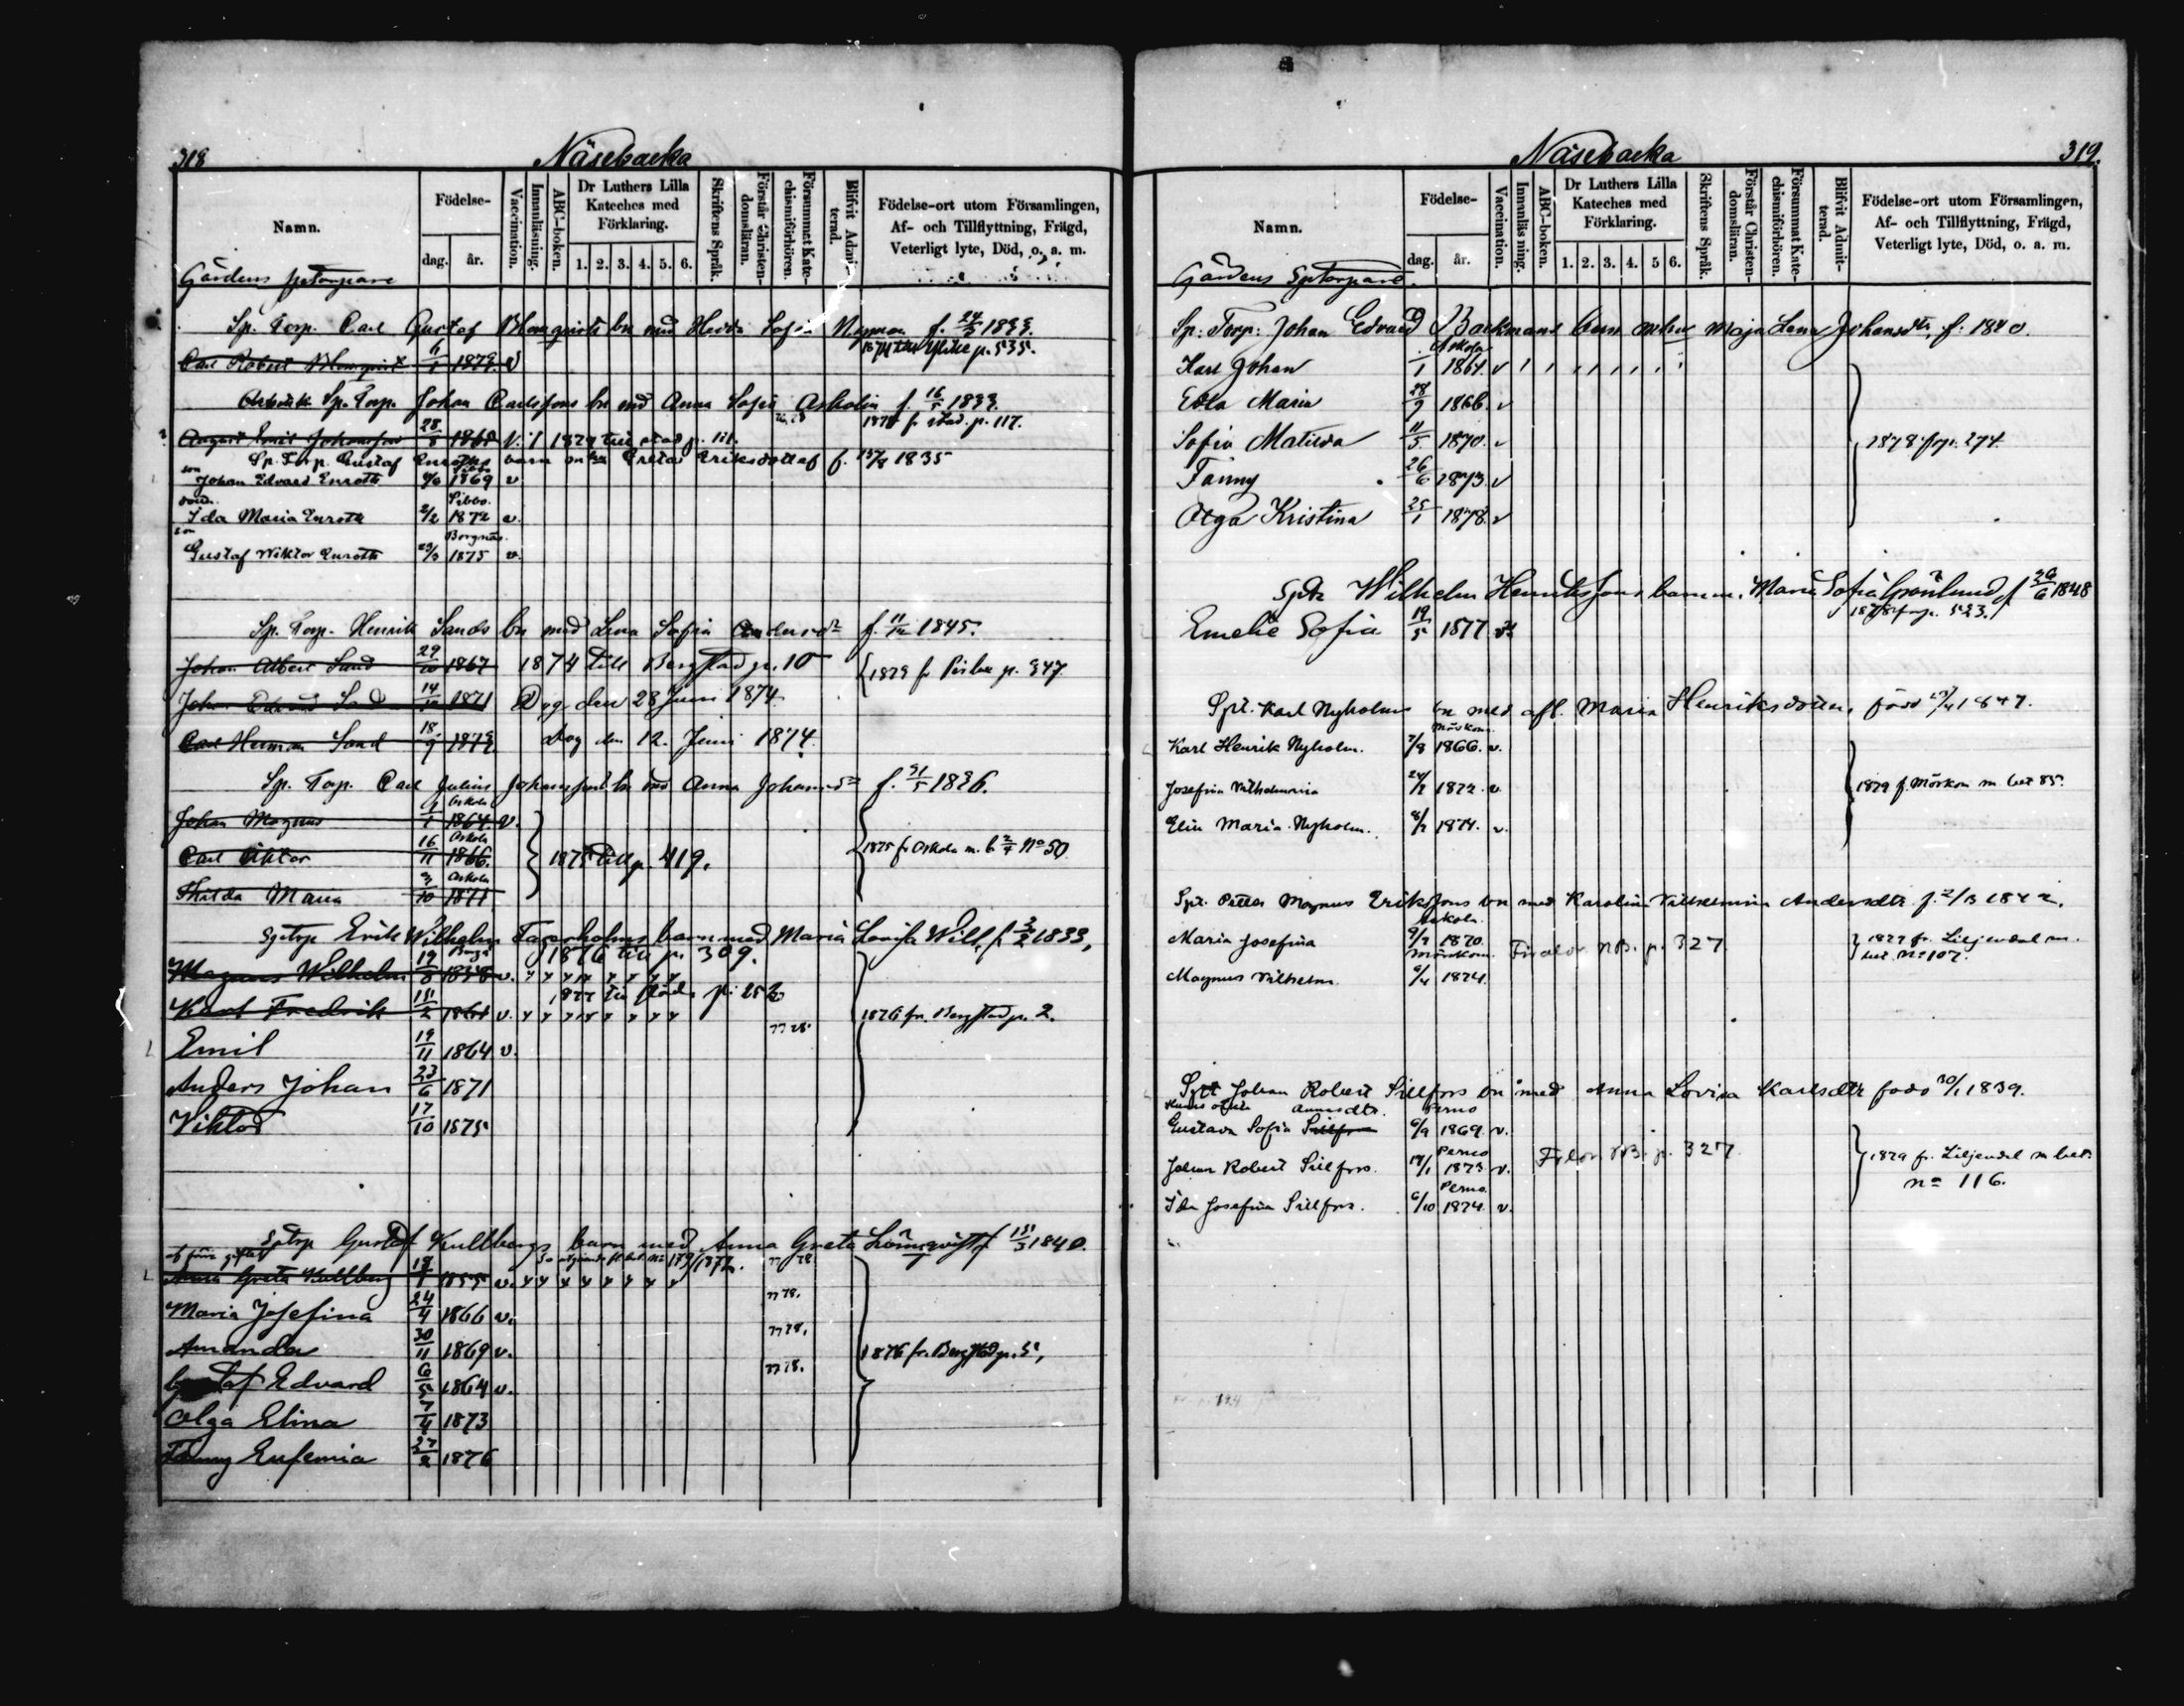 318
Näsebacka
Namn.
Födelse-
dag.
år.
Vaccination.
Innanläsning.
ABC-boken.
Dr Luthers Lilla
Kateches med
Förklaring.
1. 2. 3. 4. 5. 6.
Skriftens Språk.
Förstår Christen-
domsläran.
Försummat Kate-
chismiförhören.
Blifvit Admit-
terad.
Födelse-ort utom Församlingen,
Af- och Tillflyttning, Frägd,
Veterligt lyte, Död, o. a. m.
Gårdens sptorpare
Sp. Torp. Carl Gustaf Blomqvists bn med Hedda Sofia Nyman f.
Carl Robert Blomqvist p. 535.
Sp. Torp. Johan Carlssons bn med Anna Sofia Askolin f. 16/5 1833.
August Emil Johansson 28/8 1868 v. 1879 till stad p. 111. 1878 fr stad. p. 117.
Sp. Torp. Gustaf Enroths barn Greta Eriksdotter f. 1835
son
Johan Edvard Enroth 1869 v
Sibbo.
Ida Maria Enroth 2/2 1872 v.
son Borgnäs.
Gustaf Wiktor Enroth 1875 v.
Sp. Torp. Henrik Sands bn med Lena Sofia Andersdr f. 11/12 1845.
Johan Albert Sand 29/10 1867 1874 till Bergstad p. 10 1873 fr p. 347.
Johan Edvard Sand 14/12 1871 Dog den 28 Juni 1874.
Carl Herman Sand 18/9 1873. dog den 12. Juni 1874.
Sp. Torp. Carl Julius Johanssons bn med Anna Johansdr f. 31/5 1836.
Askola
Johan Magnus 1/1 1864. v.
Askola
Carl Viktor 16/11 1866. 1875 till p. 419. 1875 fr Askola m. b. No 50
Askola
Hilda Maria 1871
Sptrp Erik Wilhelm Fagerholms barn med Maria Lovisa Will. f. 3/2 1833,
1876 till p. 309.
Magnus Wilhelm 19/8 1858 v.
1877 till
Karl Fredrik 15/2 1861 v. 1876 fr. Bergstad p. 2.
77 78.
Emil 19/11 1864 v.
Anders Johan 23/6 1871
Viktor 17/10 1875
Sptrp Gustaf Kullbergs barn med Anna Greta Lönnqvist f 15/3 1840.
Anna Greta Kullberg 1855 v. 77 78
77 78.
Maria Josefina 24/4 1866 v.
77 78.
Amanda 30/11 1869 v. 1876 fr. Bergstad p. 5,
77 78.
Gustaf Edvard 6/5 1864 v.
Olga Elina 7/4 1873
Fanny Eufemia 27/2 1876
Näsebacka
319.
Namn.
Födelse-
dag.
år.
Vaccination.
Innanläsning.
ABC-boken.
Dr Luthers Lilla
Kateches med
Förklaring.
1. 2. 3. 4. 5 6.
Skriftens Språk.
Förstår Christen-
domsläran.
Försummat Kate-
chismiförhören.
Blifvit Admit-
terad.
Födelse-ort utom Församlingen,
Af- och Tillflyttning, Frägd,
Veterligt lyte, Död, o. a. m.
Gårdens Sptorpare.
Sp: Torp: Johan Edvard Backmans barn Maja Lena Johansdtr, f. 1840.
Askola
Karl Johan 1/1 1864. v
Edla Maria 28/9 1866. v
Sofia Matilda 11/5 1870. v 1878 fr p. 274.
Fanny 26/6 1873. v
Olga Kristina 25/1 1878. v
Sptr Wilhelm Henrikssons barn m. Maria Sofia Grönlund f 26/6 1848
Emelie Sofia 19/5 1877 1878 fr p. 523.
Spt. Karl Nyholms bn med afl. Maria Henriksdotter, född 1847.
Mörskom.
Karl Henrik Nyholm. 7/8 1866. v.
Josefina Vilhelmina 1872. v. 1879 f. Mörskom m bet 85.
Elin Maria Nyholm. 1874. v.
Spt. Petter Magnus Erikssons bn med Karolina Vilhelmina Andersdtr f. 1842.
Askola.
Maria Josefina 1870. p. 327 1877 fr. Liljendal m.
Mörskom. bet. No 107.
Magnus Vilhelm 1874.
Spt Johan Robert Sillfors bn med Anna Lovisa Karlsdtr född 30/1 1839.
Annasdtr. Perno
Gustava Sofia Sillfors 6/9 1869. v.
Perno
Johan Robert Sillfors. 1873. v. p. 327 1879 fr. Liljendal m bet.
Perno. no 116.
Ida Josefina Sillfors. 6/10 1874. v.